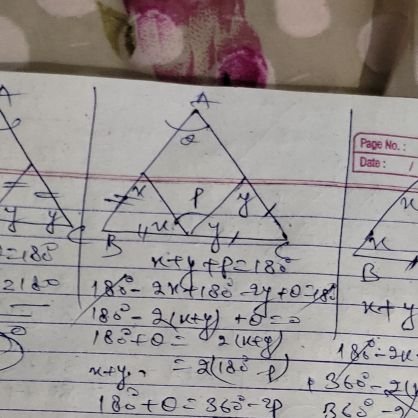 A
A
θ
Page No. :
Date : /
x P y
x y
y y C
B
x
x
B
x+y+P=180°
=180°
180°-2x+180°-2y+θ=180°
2180
180°-2(x+y)+θ=0
x+y
180°+θ = 2(x+y)
180°-2x-
x+y. = 2(180°-P)
360°-2(x
180°+θ=360°-2P
360°-